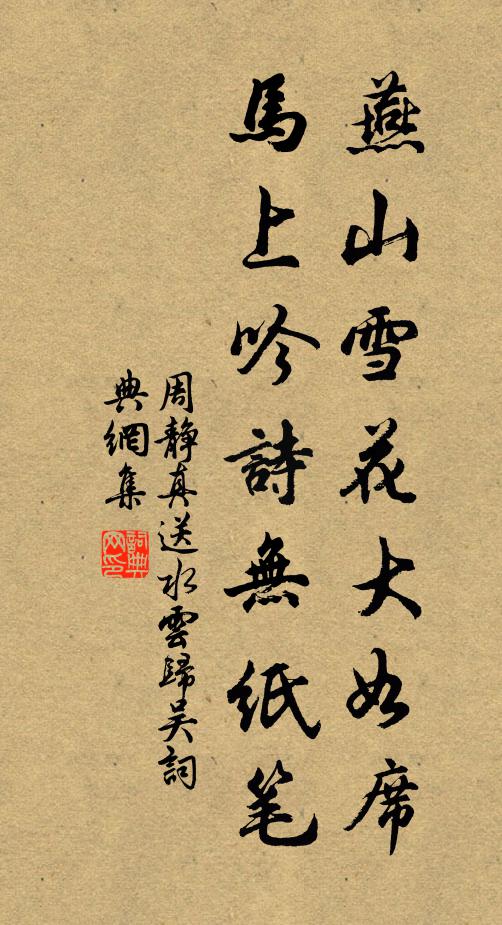 燕山雪花大如席
馬上吟詩無紙笔
周靜真送水雲歸吴詞
典網集
詞典
网印